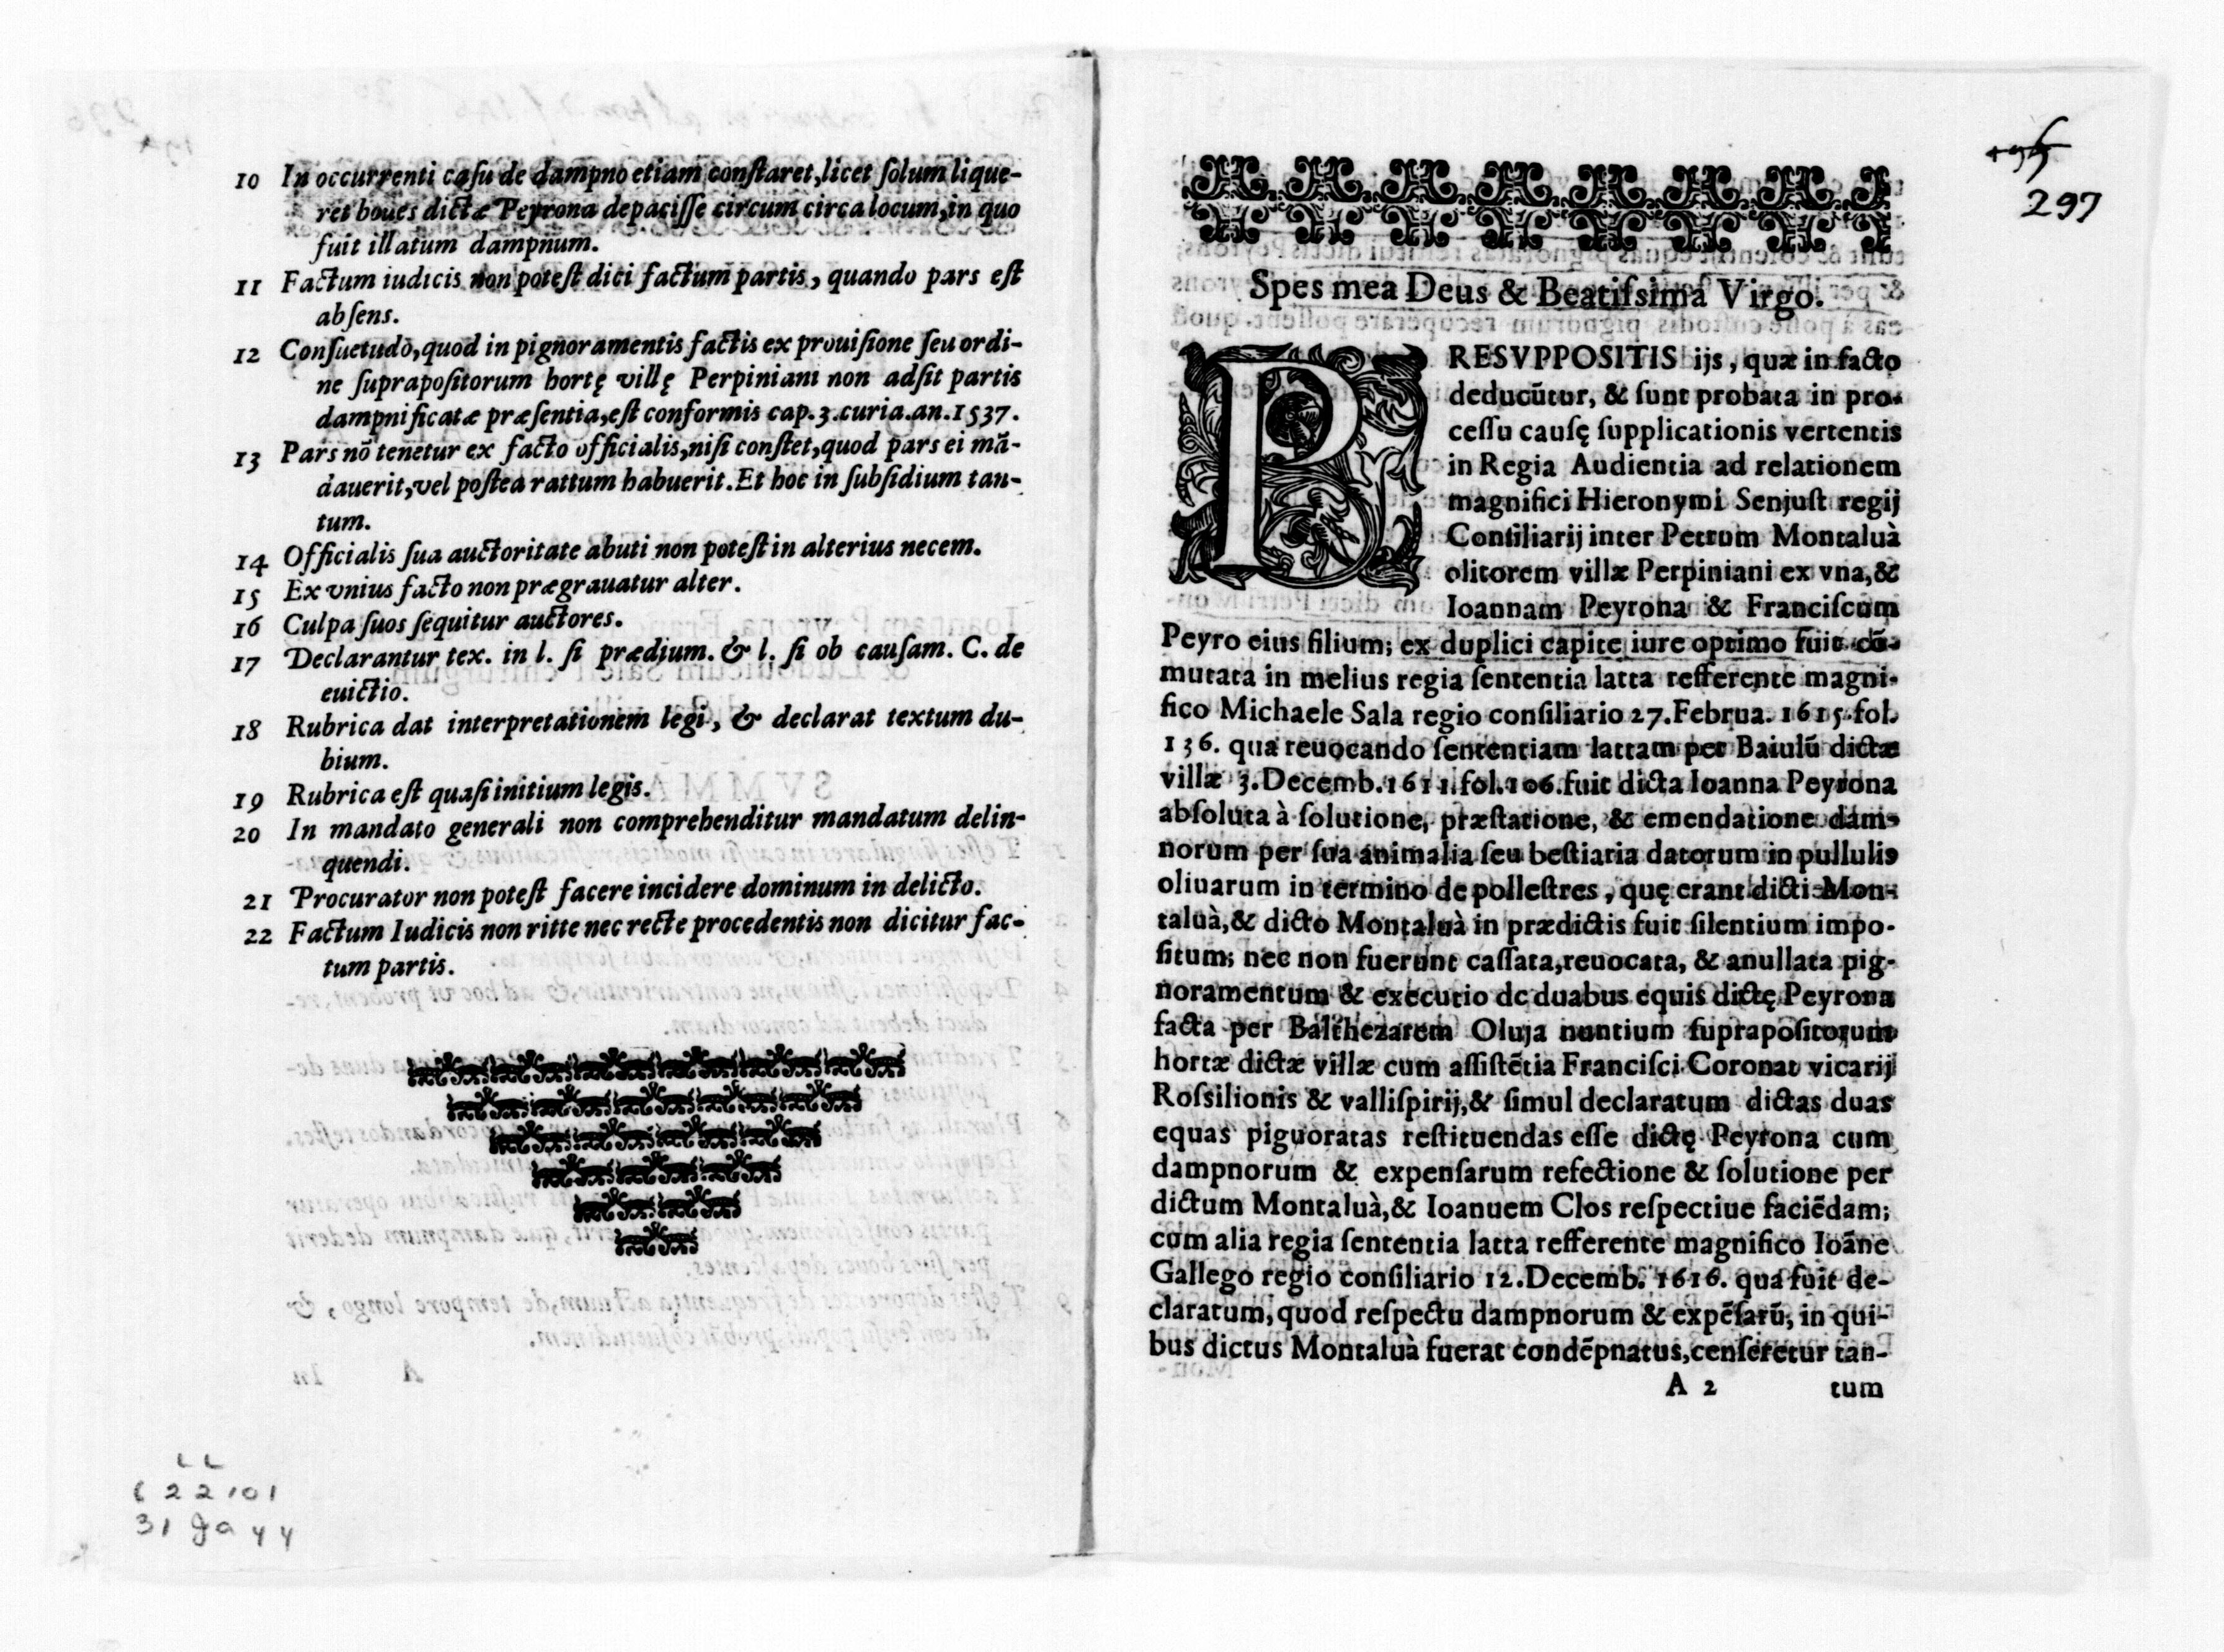 10 In occurrenti caſu de dampno etiam conſtaret, licet ſolum lique-
ret boues dictæ Peyrona depaciſſe circum circa locum, in quo
fuit illatum dampnum.
11 Factum iudicis non poteſt dici factum partis, quando pars eſt
abſens.
12 Conſuetudo, quod in pignoramentis factis ex prouiſione ſeu ordi-
ne ſuprapoſitorum hortę villę Perpiniani non adſit partis
dampnificatæ præſentia, eſt conformis cap. 3. curia. an. 1537.
13 Pars nō tenetur ex facto officialis, niſi conſtet, quod pars ei mā-
dauerit, vel poſtea rattum habuerit. Et hoc in ſubſidium tan-
tum.
14 Officialis ſua auctoritate abuti non poteſt in alterius necem.
15 Ex vnius facto non prægrauatur alter.
16 Culpa ſuos ſequitur auctores.
17 Declarantur tex. in l. ſi prædium. & l. ſi ob cauſam. C. de
euictio.
18 Rubrica dat interpretationem legi, & declarat textum du-
bium.
19 Rubrica eſt quaſi initium legis.
20 In mandato generali non comprehenditur mandatum delin-
quendi.
21 Procurator non poteſt facere incidere dominum in delicto.
22 Factum Iudicis non ritte nec recte procedentis non dicitur fac-
tum partis.
297
Spes mea Deus & Beatiſsima Virgo.
PRESVPPOSITIS ijs, quæ in facto
deducūtur, & ſunt probata in pro-
ceſſu cauſę ſupplicationis vertentis
in Regia Audientia ad relationem
magnifici Hieronymi Senjuſt regij
Conſiliarij inter Petrum Montaluà
olitorem villæ Perpiniani ex vna, &
Ioannam Peyrona & Franciſcum
Peyro eius filium; ex duplici capite iure optimo fuit cō-
mutata in melius regia ſententia latta refferente magni-
fico Michaele Sala regio conſiliario 27. Februa. 1615. fol.
136. qua reuocando ſententiam lattam per Baiulū dictæ
villæ 3. Decemb. 1611. fol. 106. fuit dicta Ioanna Peyrona
abſoluta à ſolutione, præſtatione, & emendatione dam-
norum per ſua animalia ſeu beſtiaria datorum in pullulis
oliuarum in termino de polleſtres, quę erant dicti Mon-
taluà, & dicto Montaluà in prædictis fuit ſilentium impo-
ſitum; nec non fuerunt caſſata, reuocata, & anullata pig-
noramentum & executio de duabus equis dictę Peyrona
facta per Balthezarem Oluja nuntium ſuprapoſitorum
hortæ dictæ villæ cum aſſiſtētia Franciſci Coronat vicarij
Roſsilionis & valliſpirij, & ſimul declaratum dictas duas
equas piguoratas reſtituendas eſſe dictę Peyrona cum
dampnorum & expenſarum refectione & ſolutione per
dictum Montaluà, & Ioanuem Clos reſpectiue faciēdam;
cum alia regia ſententia latta refferente magnifico Ioāne
Gallego regio conſiliario 12. Decemb. 1616. qua fuit de-
claratum, quod reſpectu dampnorum & expēſarū, in qui-
bus dictus Montaluà fuerat condēpnatus, cenſeretur tan-
A 2 tum
L L
6 2 2 101
31 ga 44